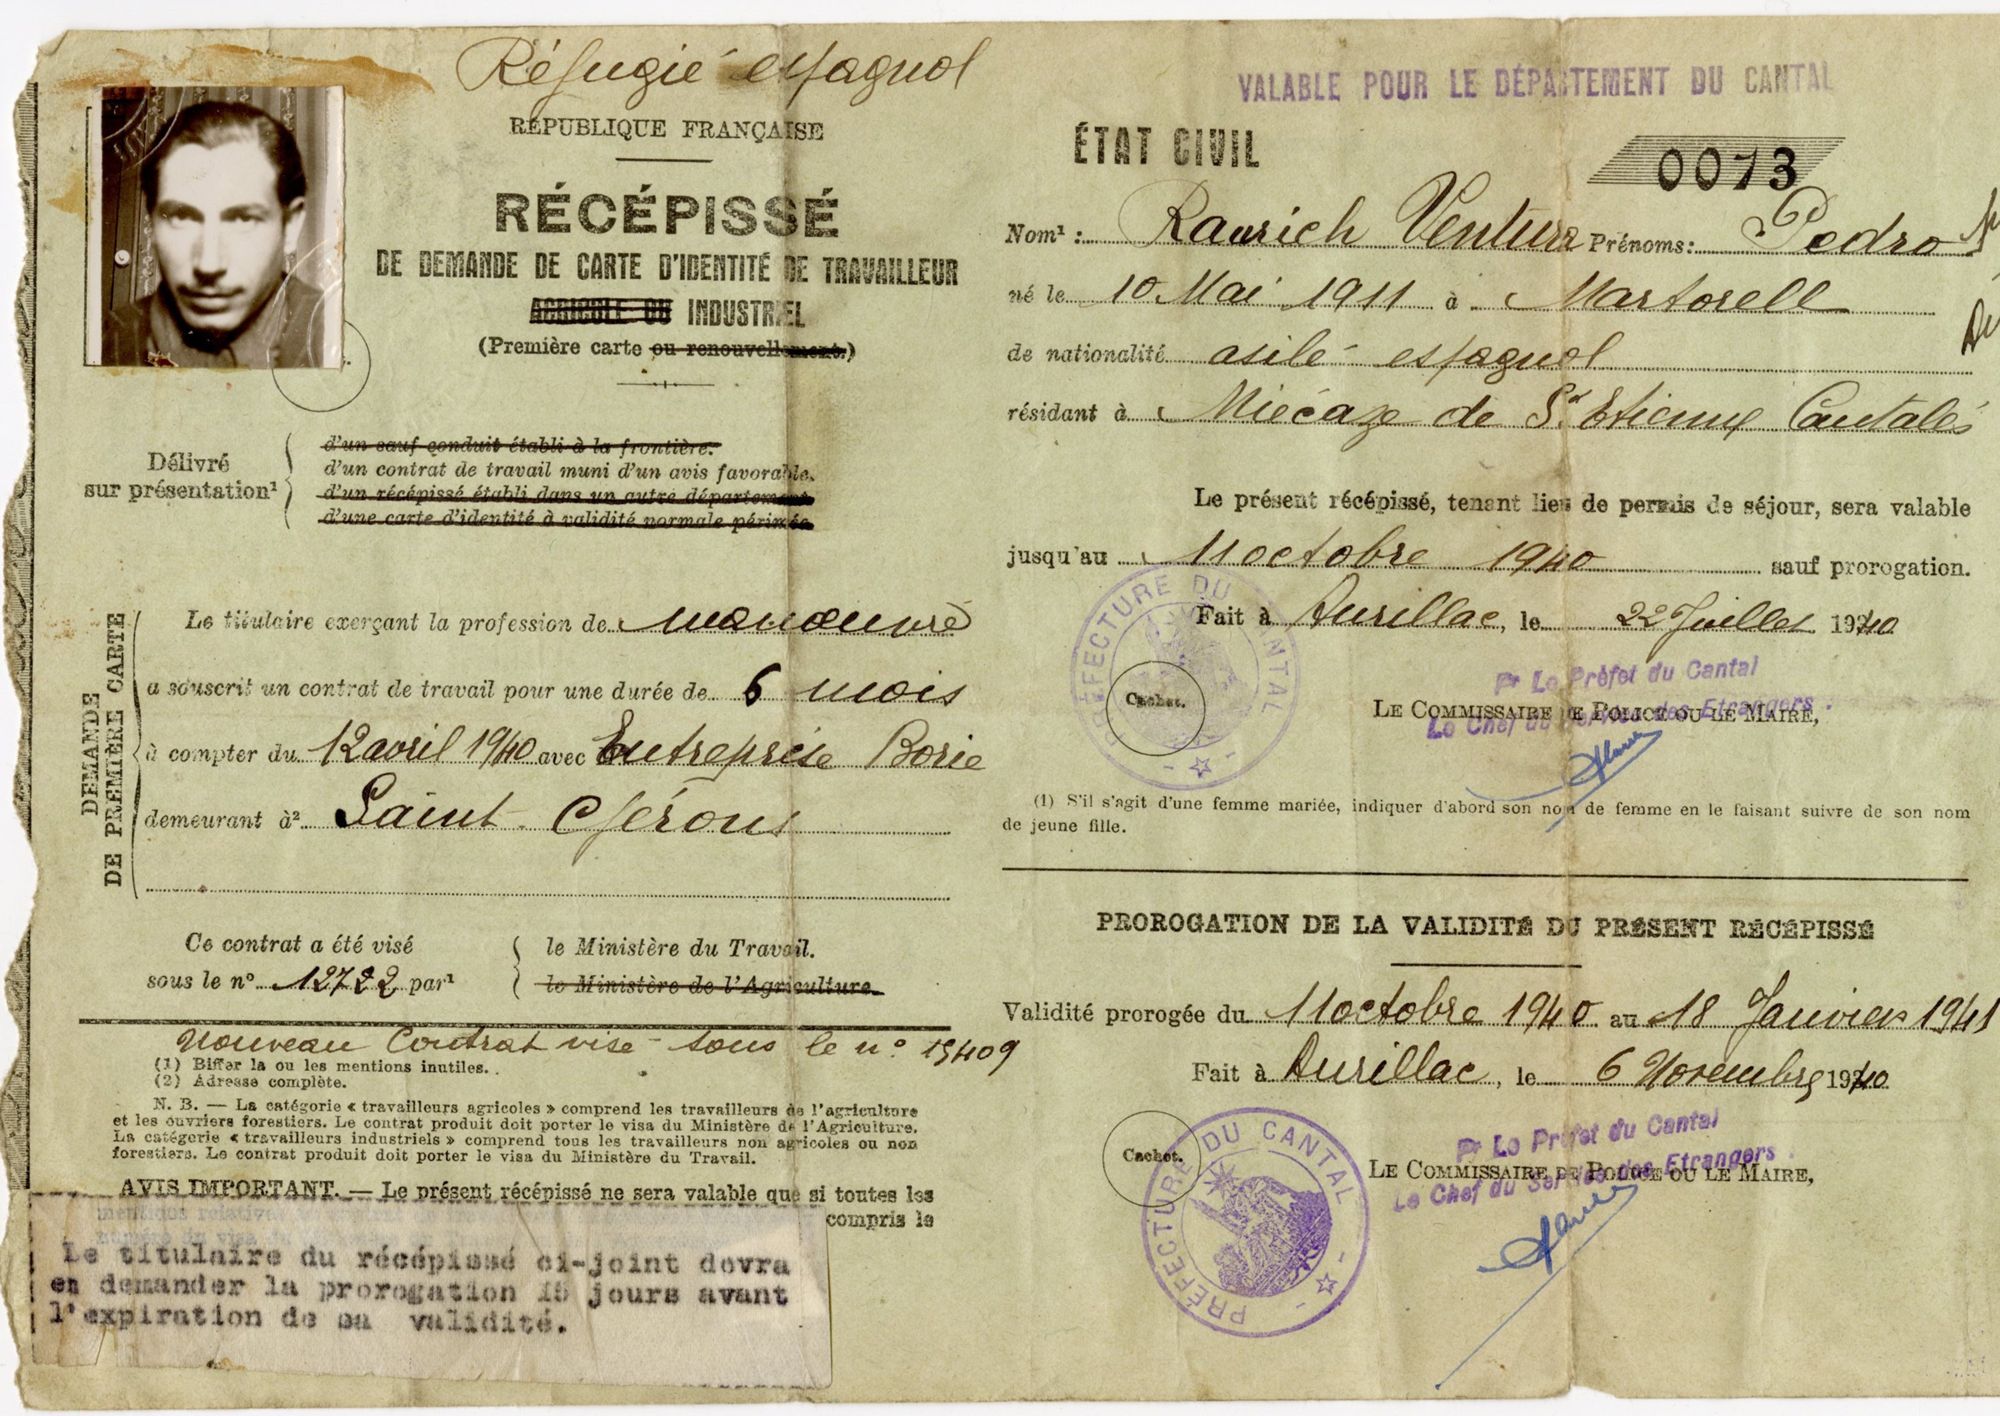 Réfugié espagnol
RÉPUBLIQUE FRANÇAISE
RÉCÉPISSÉ
DE DEMANDE DE CARTE D'IDENTITÉ DE TRAVAILLEUR
AGRICOLE OU INDUSTRIEL
(Première carte ou renouvellement.)
Délivré
sur présentation¹
d'un sauf conduit établi à la frontière.
d'un contrat de travail muni d'un avis favorable.
d'un récépissé établi dans un autre département
d'une carte d'identité à validité normale périmée
DEMANDE
DE PREMIÈRE CARTE
Le titulaire exerçant la profession de manœuvre
a souscrit un contrat de travail pour une durée de 6 mois
à compter du 12 avril 1940 avec Entreprise Borie
demeurant à² Saint Gérons
Ce contrat a été visé
sous le n° 12722 par¹
le Ministère du Travail.
le Ministère de l'Agriculture.
Nouveau Contrat visé sous le n° 15409
(1) Biffer la ou les mentions inutiles.
(2) Adresse complète.
N. B. — La catégorie « travailleurs agricoles » comprend les travailleurs de l'agriculture
et les ouvriers forestiers. Le contrat produit doit porter le visa du Ministère de l'Agriculture.
La catégorie « travailleurs industriels » comprend tous les travailleurs non agricoles ou non
forestiers. Le contrat produit doit porter le visa du Ministère du Travail.
AVIS IMPORTANT. — Le présent récépissé ne sera valable que si toutes les
mentions relatives
compris le
Le titulaire du récépissé ci-joint devra
en demander la prorogation 15 jours avant
l'expiration de sa validité.
VALABLE POUR LE DÉPARTEMENT DU CANTAL
ÉTAT CIVIL
0073
Nom¹ : Raurich Ventura Prénoms: Pedro
né le 10 Mai 1911 à Martorell
de nationalité asilé espagnol
résidant à Niécaze de St Etienne Cantalès
Le présent récépissé, tenant lieu de permis de séjour, sera valable
jusqu'au 11 octobre 1940 sauf prorogation.
Fait à Aurillac, le 22 Juillet 1940
PRÉFECTURE DU CANTAL
Cachet.
Pr Le Préfet du Cantal
LE COMMISSAIRE DE POLICE OU LE MAIRE,
Le Chef du Service des Etrangers
(1) S'il s'agit d'une femme mariée, indiquer d'abord son nom de femme en le faisant suivre de son nom
de jeune fille.
PROROGATION DE LA VALIDITÉ DU PRÉSENT RÉCÉPISSÉ
Validité prorogée du 11 octobre 1940 au 18 Janvier 1941
Fait à Aurillac, le 6 Novembre 1940
PRÉFECTURE DU CANTAL
Cachet.
Pr Le Préfet du Cantal
LE COMMISSAIRE DE POLICE OU LE MAIRE,
Le Chef du Service des Etrangers